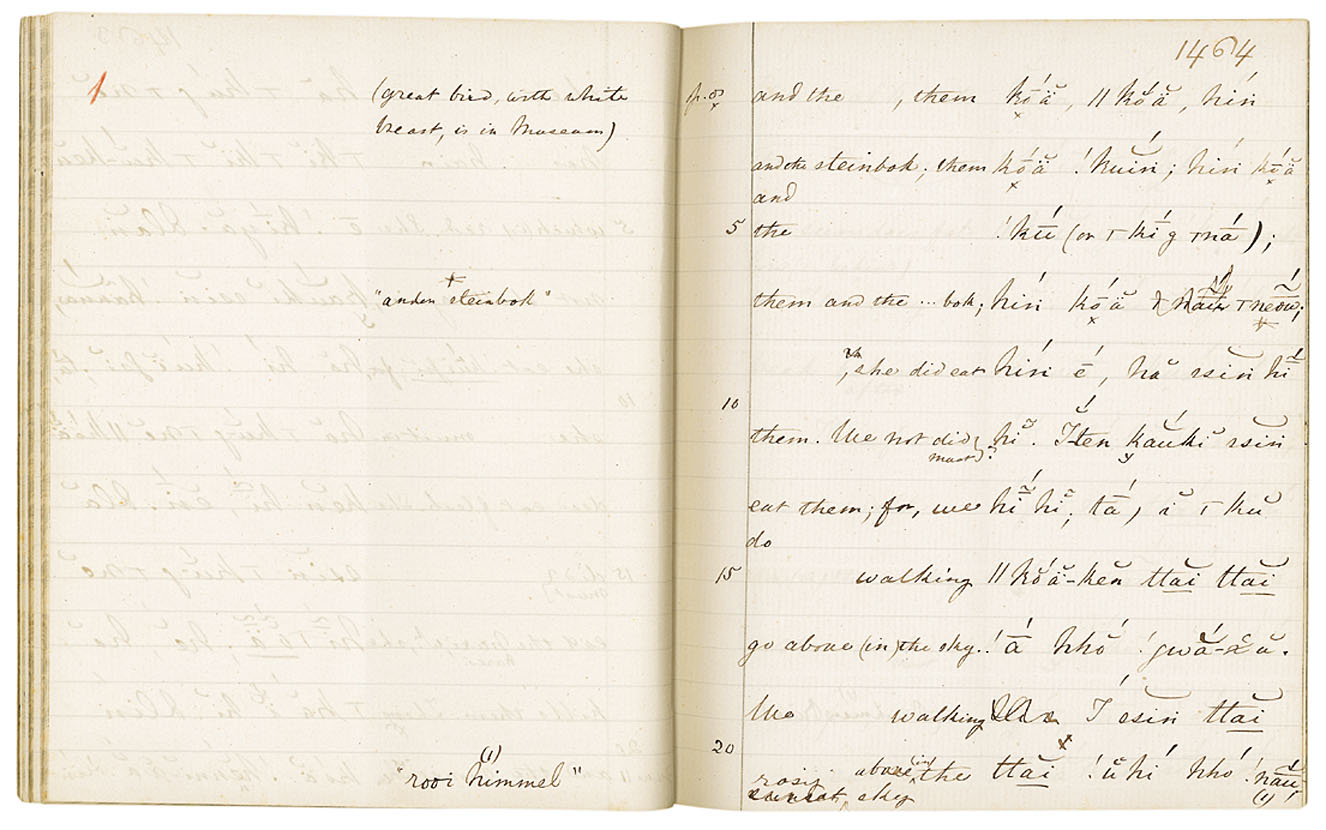 1
(great bird, with white
breast, is in Museum)
"anden steinbok"
(1)
"rooi himmel"
1464
and the , them kóä, ǁkóä, hiń
and the steinbok; them kóä !kuiń; hiń kóä
and
5 the !kú (or
them and the ... bok; hiń kóä
she did eat hiń é, hă ssin hi
10
them. We not did hĭ. I-ten kauki ssin
must)?
eat them; for, we hĭ hĭ, tá, ĭ
do
15 walking ǁkóä-kĕn ttăi ttăi
go above (in) the sky. !á hhó !gwă-χŭ.
We walking Í ssin ttăi
20 rosy above (in) the ttăi !ŭhí hhó !năŭ!
sky (1)